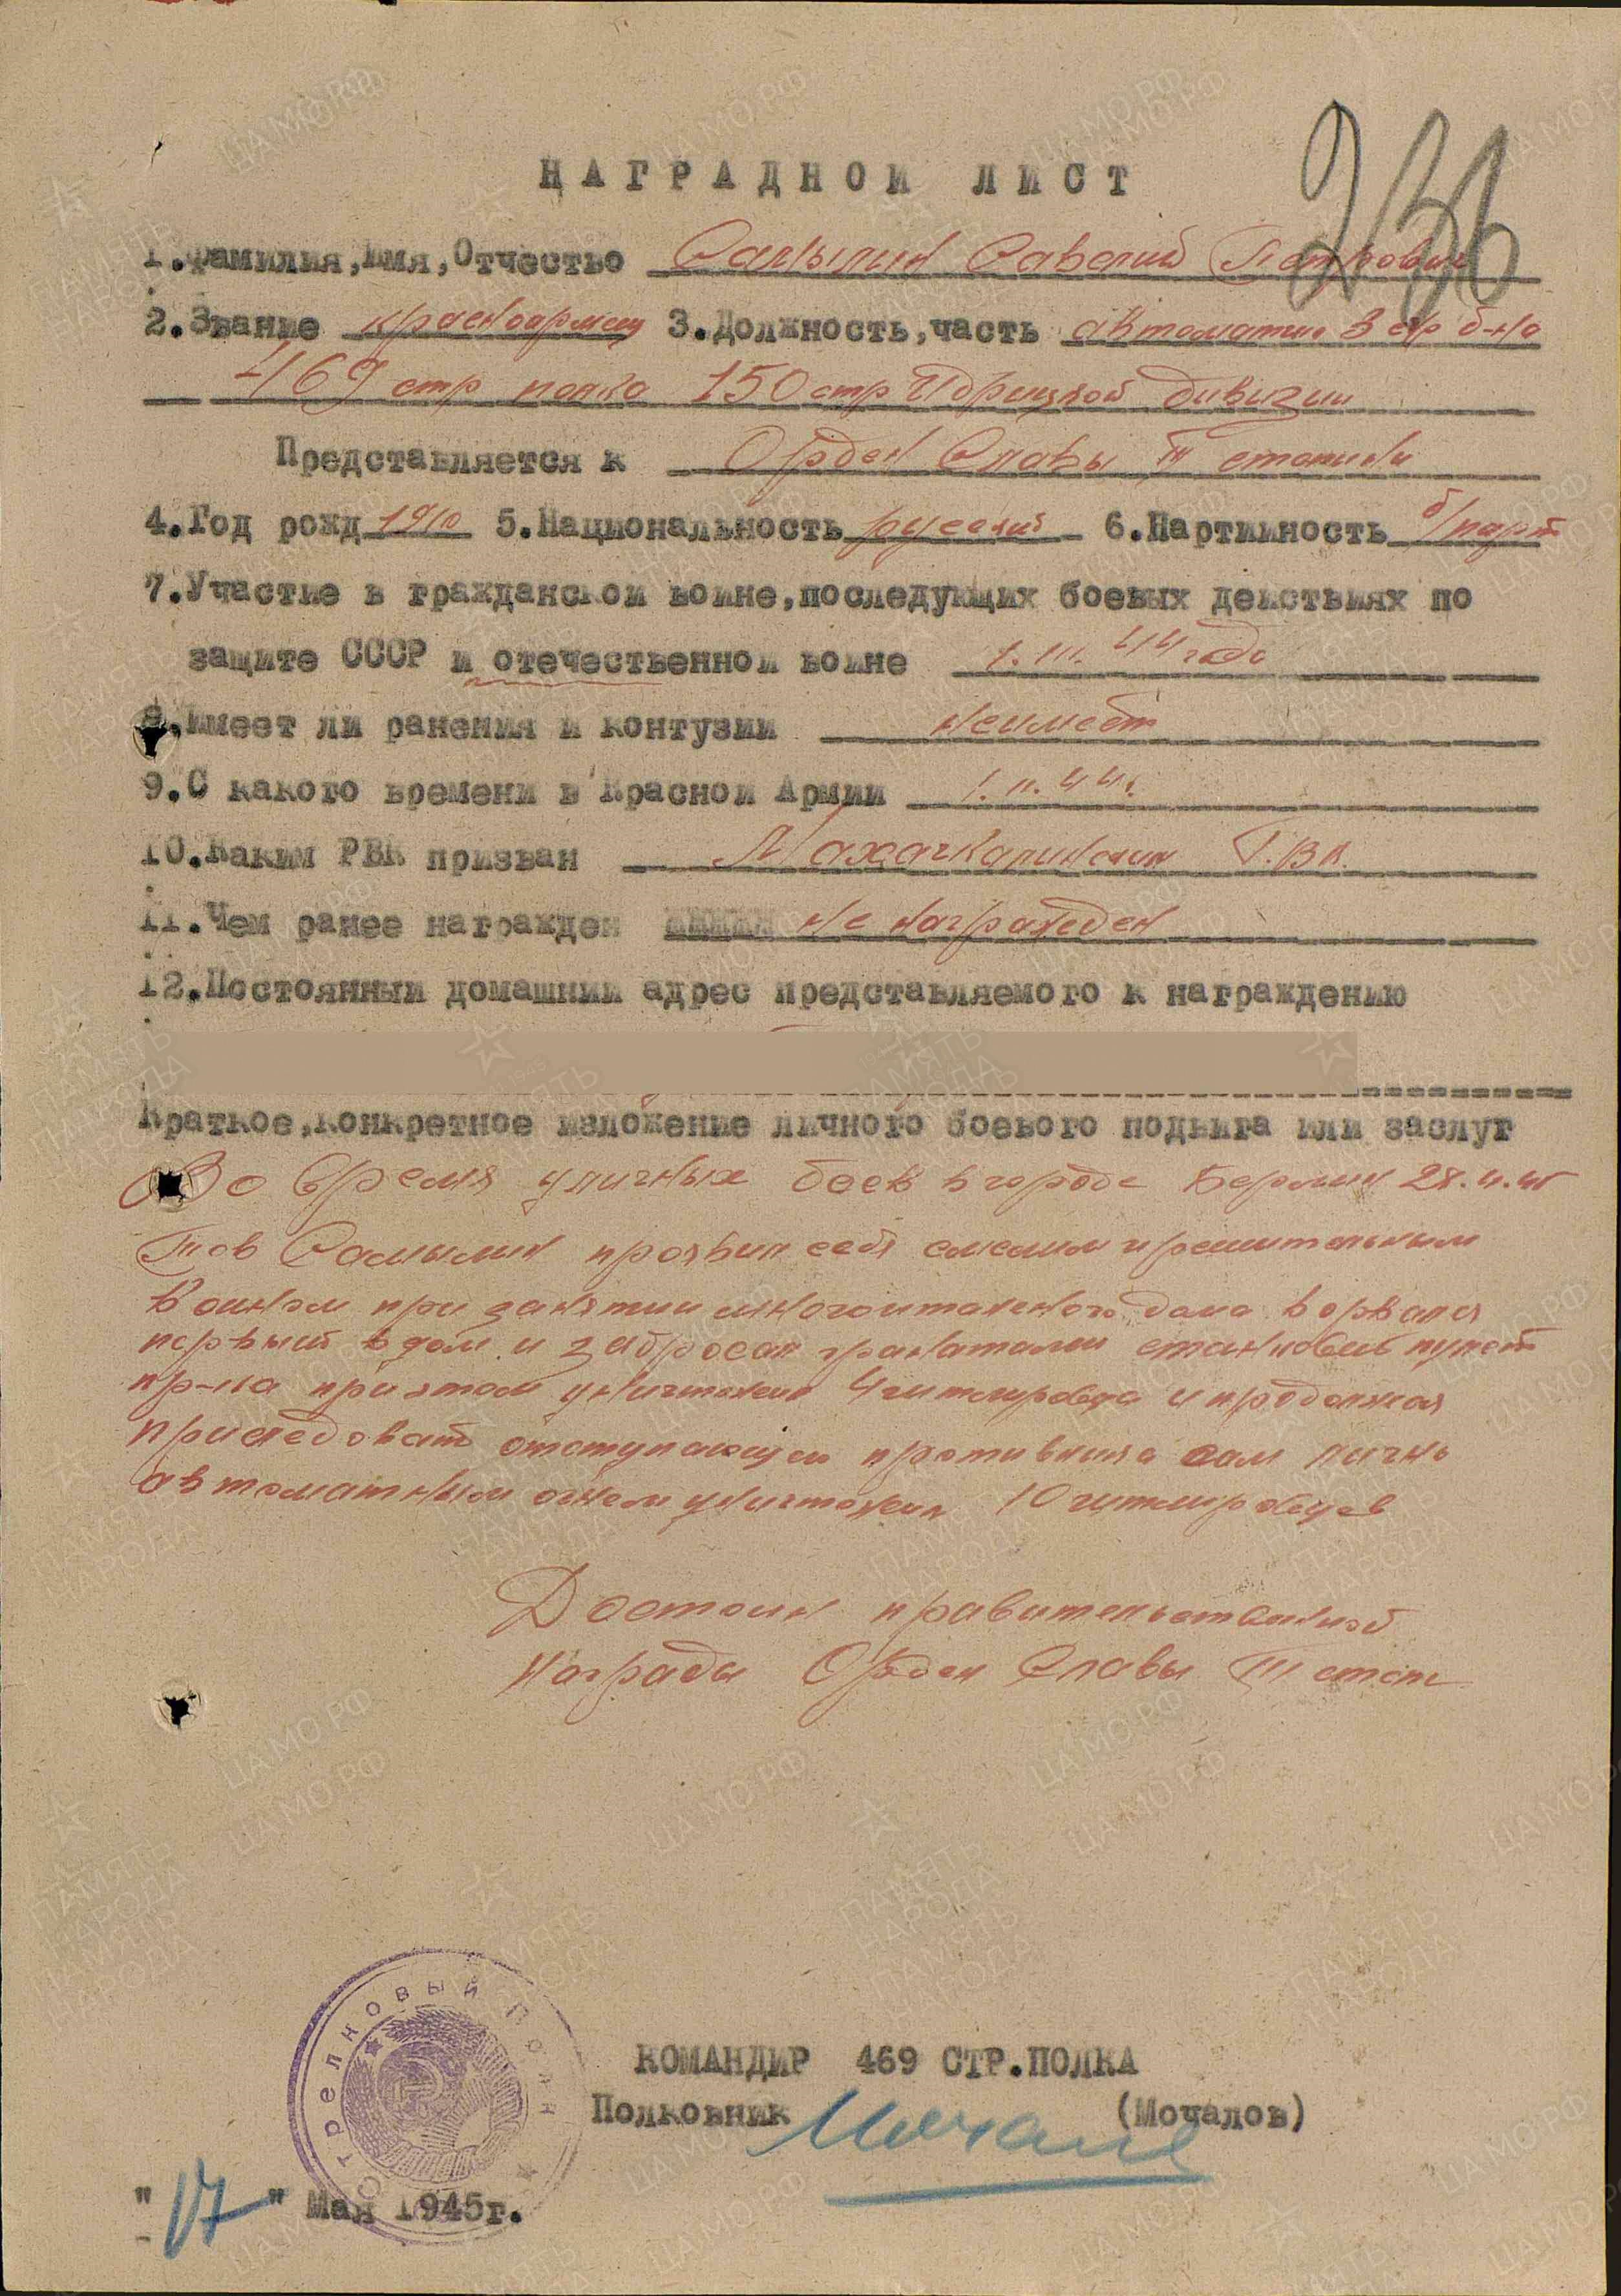 236
НАГРАДНОЙ ЛИСТ
1.Фамилия,Имя,Отчество Самылин Савелий Петрович
2.Звание красноармеец 3.Должность,часть автоматчик 3 стр б-на
469 стр полка 150 стр Идрицкой дивизии
Представляется к Орден Славы III степени
4.Год рожд 1910 5.Национальность русский 6.Партийность б/парт
7.Участие в гражданской войне,последующих боевых действиях по
защите СССР и отечественной войне 1.III.44 года
8.Имеет ли ранения и контузии неимеет
9.С какого времени в Красной Армии 1.II.44г.
10.Каким РВК призван Махачкалинским Г.В.К.
11.Чем ранее награжден не награжден
12.Постоянный домашний адрес представляемого к награждению
Краткое,конкретное изложение личного боевого подвига или заслуг
Во время уличных боев в городе Берлин 28.4.45
Тов Самылин проявил себя смелым и решительным
воином при занятии многоэтажного дома ворвался
первый в дом и забросал гранатами станковый пулем
пр-ка при этом уничтожил 4 гитлеровца и продолжая
приследовать отступающего противника сам лично
автоматным огнем уничтожил 10 гитлеровцев
Достоин правительственной
награды Орден Славы III степ
Стрелковый Полк
КОМАНДИР 469 СТР.ПОЛКА
Полковник (Мочалов)
"17" Мая 1945г.
ПАМЯТЬ НАРОДА
ЦАМО.РФ